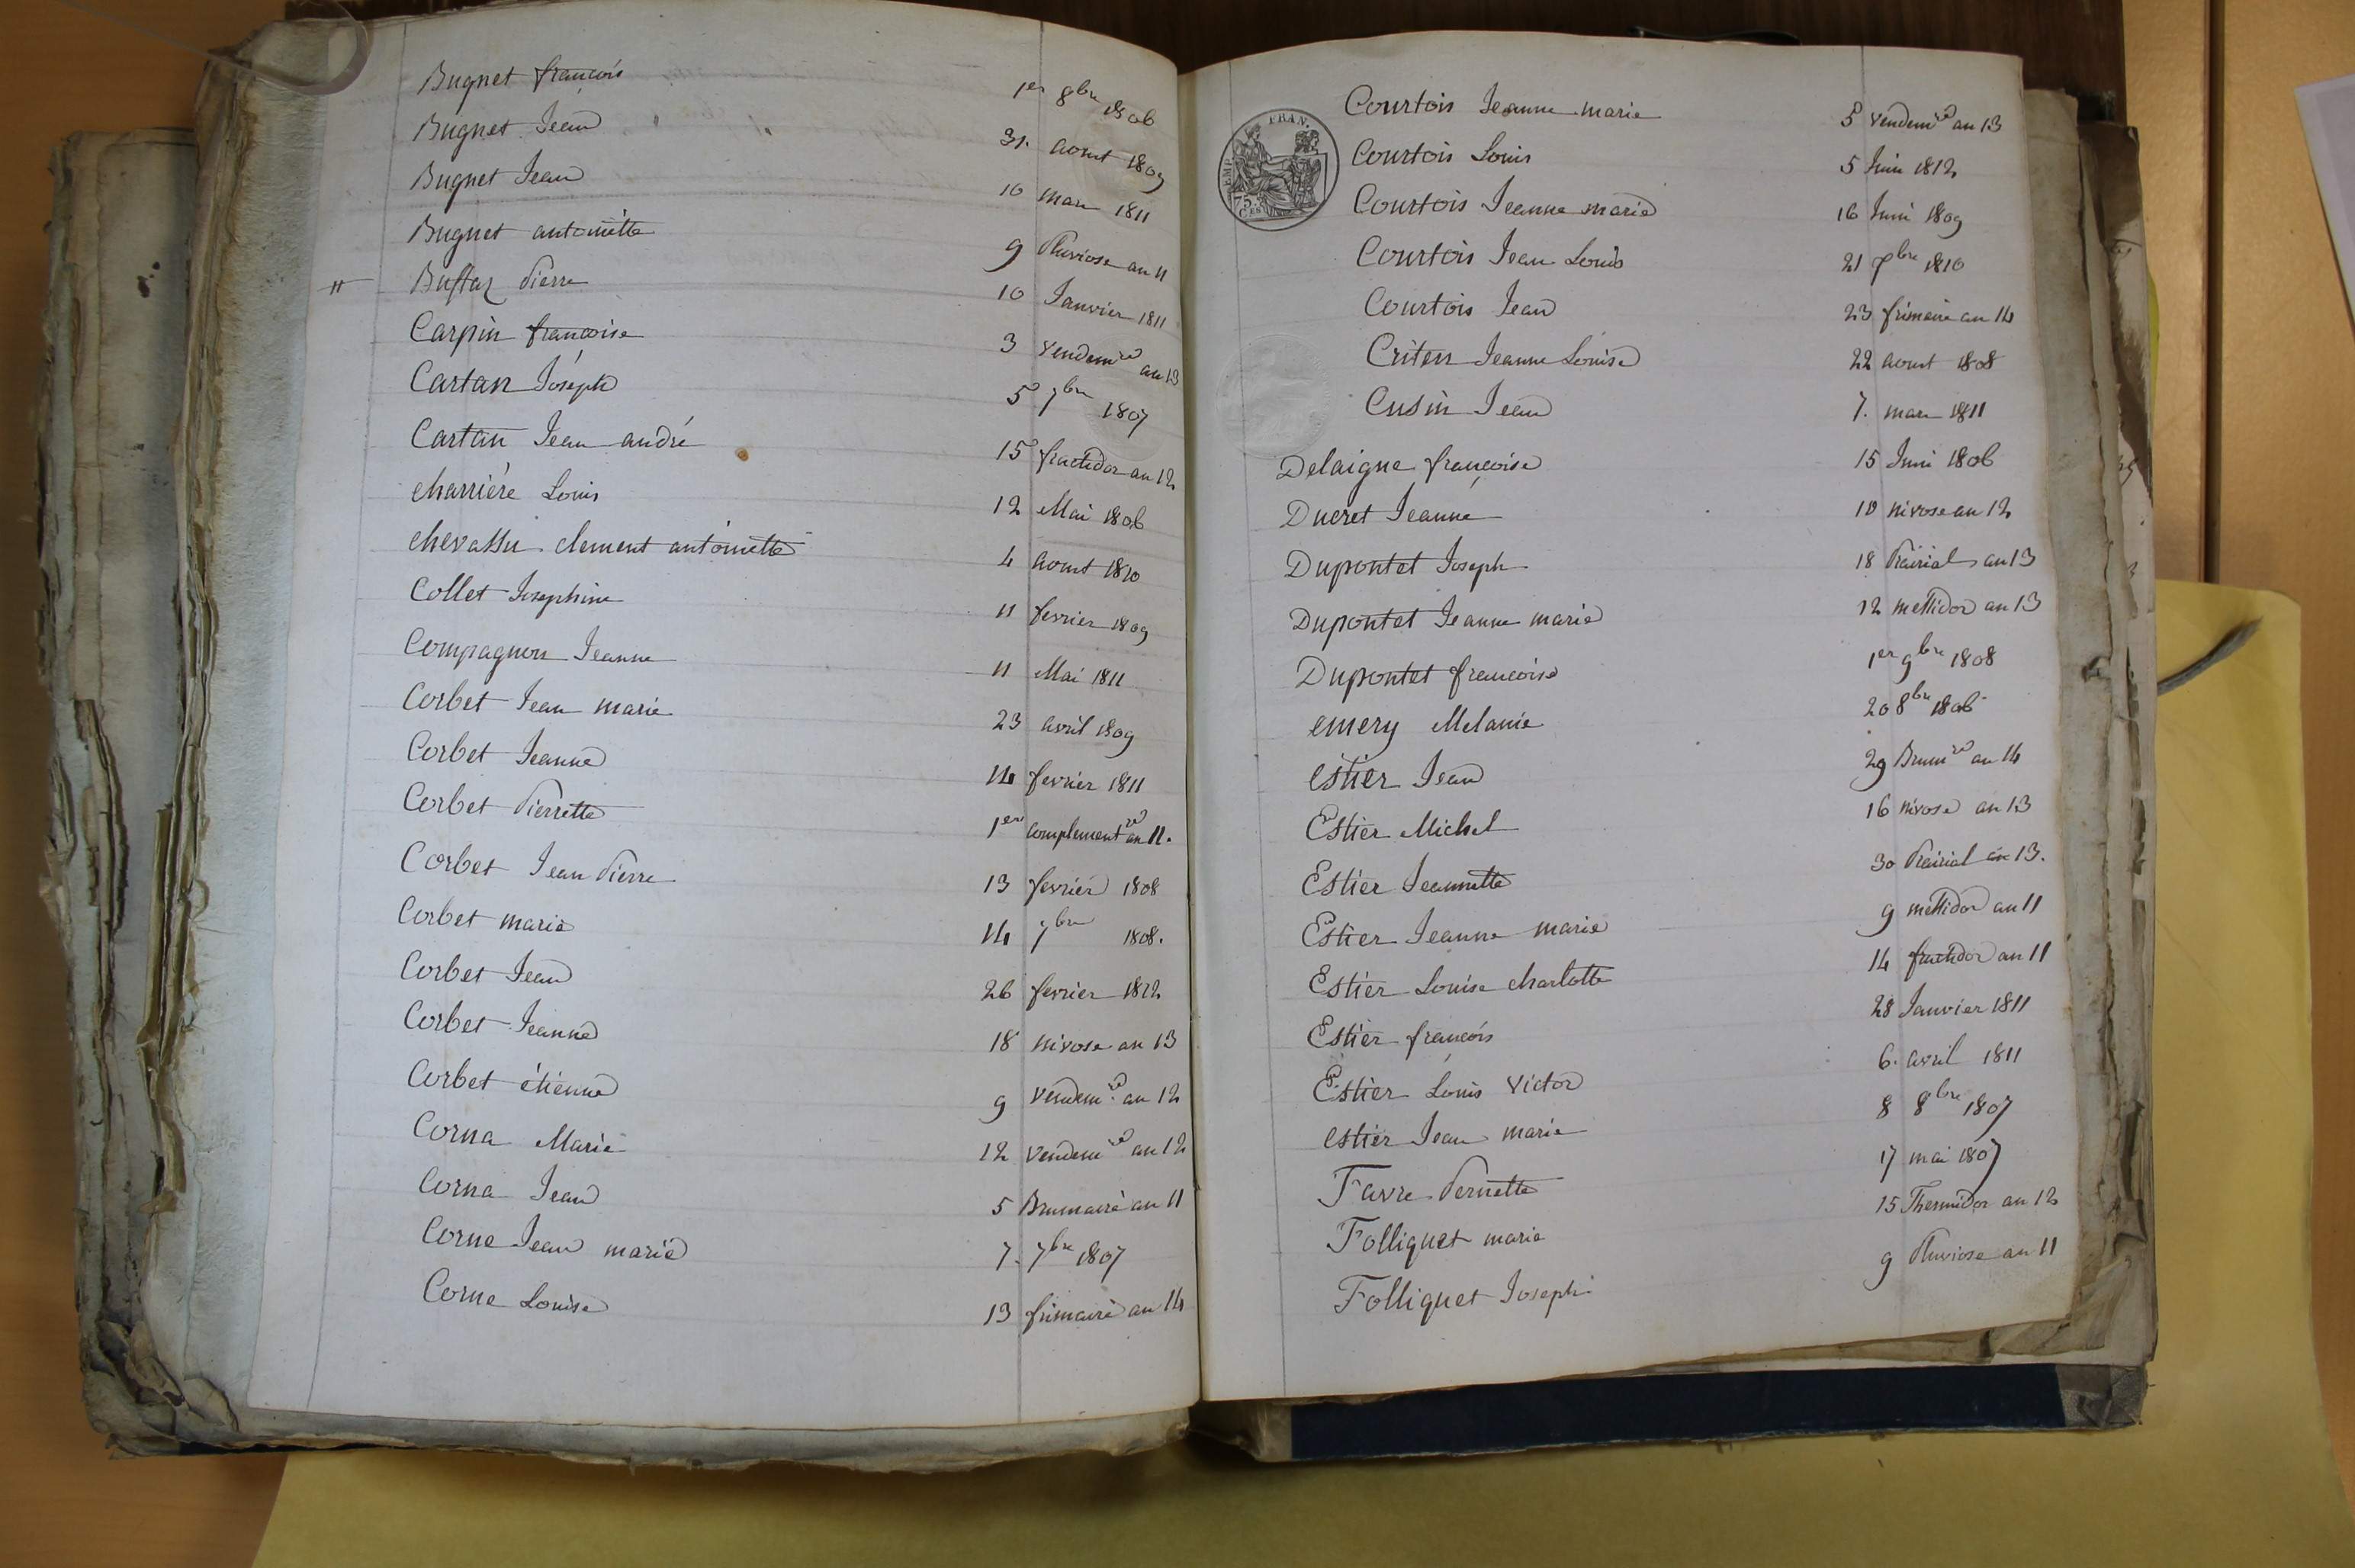 Bugnet françois 1er 8bre 1806
Bugnet Jean 31. aout 1809
Bugnet Jean 10 mars 1811
Bugnet antoinette 9 Pluviose an 11
" Buffaz Pierre 10 Janvier 1811
Carpin françoise 3 vendemre an 13
Cartan Joseph 5 7bre 1807
Cartan Jean andré 15 fructidor an 12
charriére Louis 12 Mai 1806
chevassu clement antoinette 4 aout 1810
Collet Josephine 11 fevrier 1809
Compagnon Jeanne 11 Mai 1811
Corbet Jean marie 23 avril 1809
Corbet Jeanne 14 fevrier 1811
Corbet Pierrette 1er complementre an 11.
Corbet Jean Pierre 13 fevrier 1808
Corbet marie 14 7bre 1808.
Corbet Jean 26 fevrier 1812
Corbet Jeanne 18 nivose an 13
Corbet étienne 9 vendemre an 12
Corna Marie 12 vendemre an 12
Corna Jean 5 Brumaire an 11
Corne Jean marie 7. 7bre 1807
Corne Louise 13 frimaire an 14
FRAN.
EMP.
75.
Courtois Jeanne marie 5 vendemre an 13
Courtois Louis 5 Juin 1812
Courtois Jeanne marie 16 Juin 1809
Courtois Jean Louis 21 7bre 1810
Courtois Jean 23 frimaire an 14
Criten Jeanne Louise 22 aout 1808
Cusin Jean 7. mars 1811
Delaigue françoise 15 Juin 1806
Ducret Jeanne 10 nivose an 12
Dupontet Joseph 18 Prairial an 13
Dupontet Jeanne marie 12 messidor an 13
Dupontet françoise 1er 9bre 1808
emery Melanie 20 8bre 1806
estier Jean 29 Brumre an 14
Estier Michel 16 nivose an 13
Estier Jeannette 30 Prairial an 13.
Estier Jeanne marie 9 messidor an 11
Estier Louise charlotte 14 fructidor an 11
Estier françois 28 Janvier 1811
Estier Louis Victor 6. avril 1811
estier Jean marie 8 8bre 1807
Favre Pernette 17 mai 1807
Folliguet marie 15 Thermidor an 12
Folliguet Joseph 9 Pluviose an 11